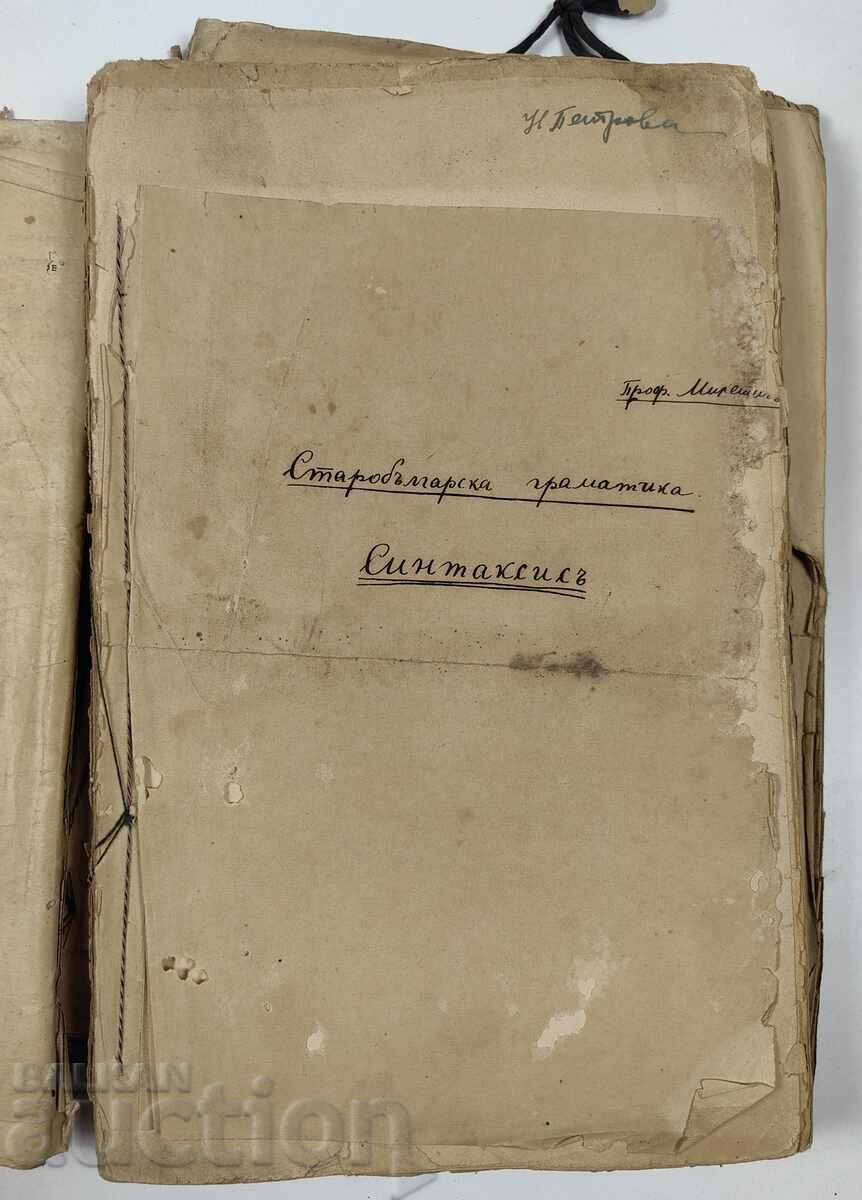 Н Петрова
Проф. Милетичъ
Старобългарска граматика.
Синтаксисъ
BALKAN
auction